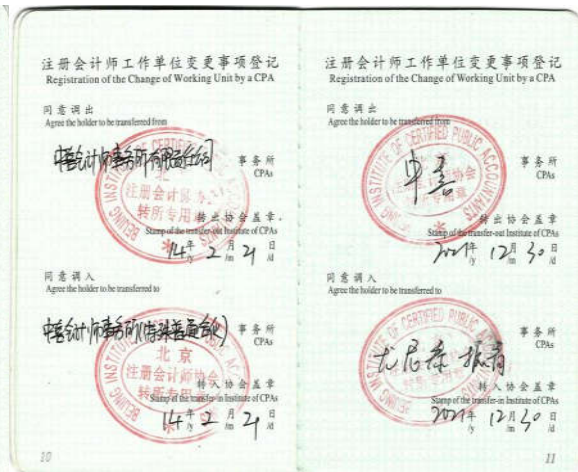 注册会计师工作单位变更事项登记
Registration of the Change of Working Unit by a CPA
同意调出
Agree the holder to be transferred from
中喜会计师事务所有限责任公司
事务所
CPAs
BEIJING INSTITUTE OF CERTIFIED
注册会计师协会
转所专用章
转出协会盖章
Stamp of the transfer-out Institute of CPAs
14年 2月 21日
/y /m /d
同意调入
Agree the holder to be transferred to
中喜会计师事务所(特殊普通合伙)
事务所
CPAs
北京
注册会计师协会
转所专用章
转入协会盖章
Stamp of the transfer-in Institute of CPAs
14年 2月 21日
/y /m /d
10
注册会计师工作单位变更事项登记
Registration of the Change of Working Unit by a CPA
同意调出
Agree the holder to be transferred from
中喜
事务所
CPAs
BEIJING INSTITUTE OF CERTIFIED PUBLIC ACCOUNTANTS
转出协会盖章
Stamp of the transfer-out Institute of CPAs
2021年 12月 30日
/y /m /d
同意调入
Agree the holder to be transferred to
尤尼泰 振青
事务所
CPAs
BEIJING INSTITUTE OF CERTIFIED PUBLIC
转入协会盖章
Stamp of the transfer-in Institute of CPAs
2021年 12月 30日
/y /m /d
11